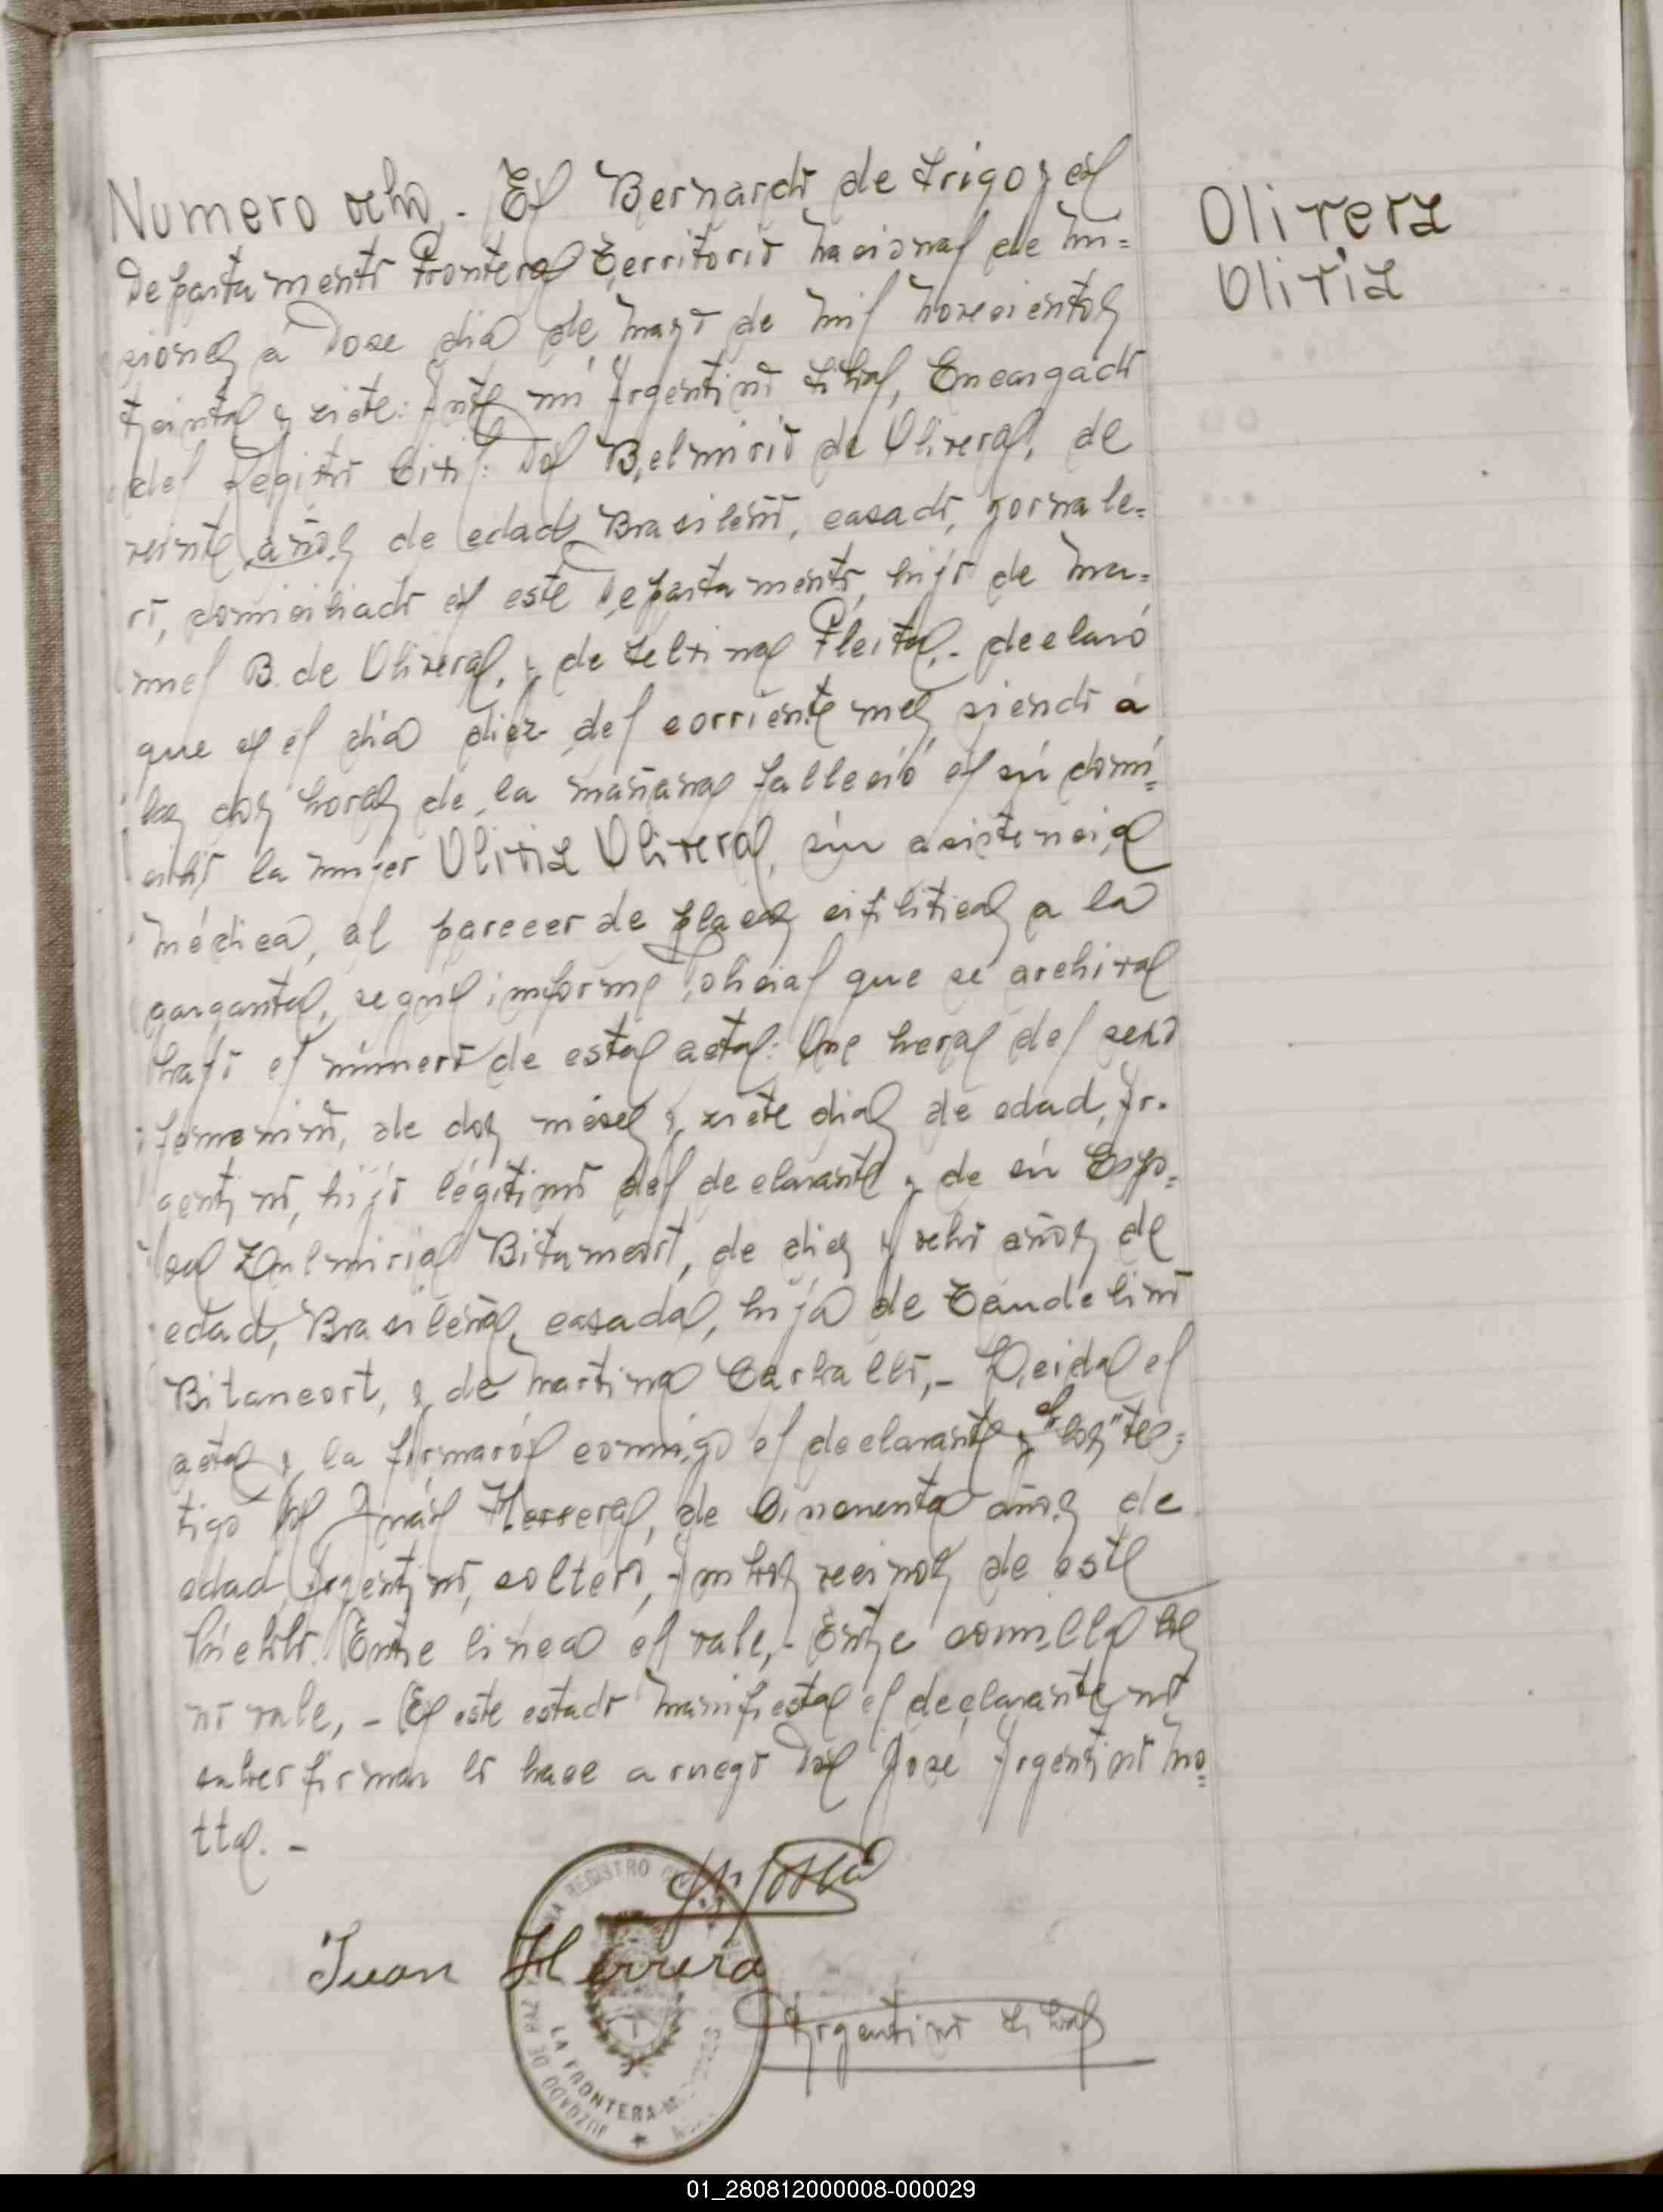 Numero ocho. En Bernardo de Irigoyen
Departamento Frontera Territorio Nacional de Mi=
siones a Dose dia de Mayo de mil novecientos
treinta y siete: Ante mi Argentino, Encargado
del Registro Civil: Don Belmirio de Olivera, de
veinte años de edad Brasileño, casado, jornale=
ro, domiciliado en este Departamento, hijo de Ma=
nuel B. de Olivera, y de Fleita,- declaró
que en el dia diez del corriente mes, siendo a
las dos horas de la mañana falleció en su domi=
cilio la mujer Olivia Olivera, sin asistencia
médica, al parecer de placas sifilitica a la
garganta, según informe Policial que se archiva
bajo el número de esta acta: Que hera del sexo
femenino, de dos meses y siete dias de edad, Ar-
gentino, hijo légitimo del declarante y de su Espo=
sa Zulmiria Bitancort, de diez y ocho años de
edad, Brasileña, casada, hija de
Bitancort, y de Martina Carballo,- Leida el
acta y la firmarón conmigo el declarante y "los" el tes=
tigo Don Juán Herrera, de Cincuenta años de
edad, Argentino, soltero, Ambos vecinos de este
Pueblo. Entre linea el vale,- Entre comilla los
no vale,- En este estado manifiesta el declarante no
saber firmar lo hace a ruego Don José Argentino Mo=
tta.-
Juan Herrera
Argentino
REGISTRO
JUZGADO DE PAZ
LA FRONTERA
Olivera
Olivia
01_280812000008-000029